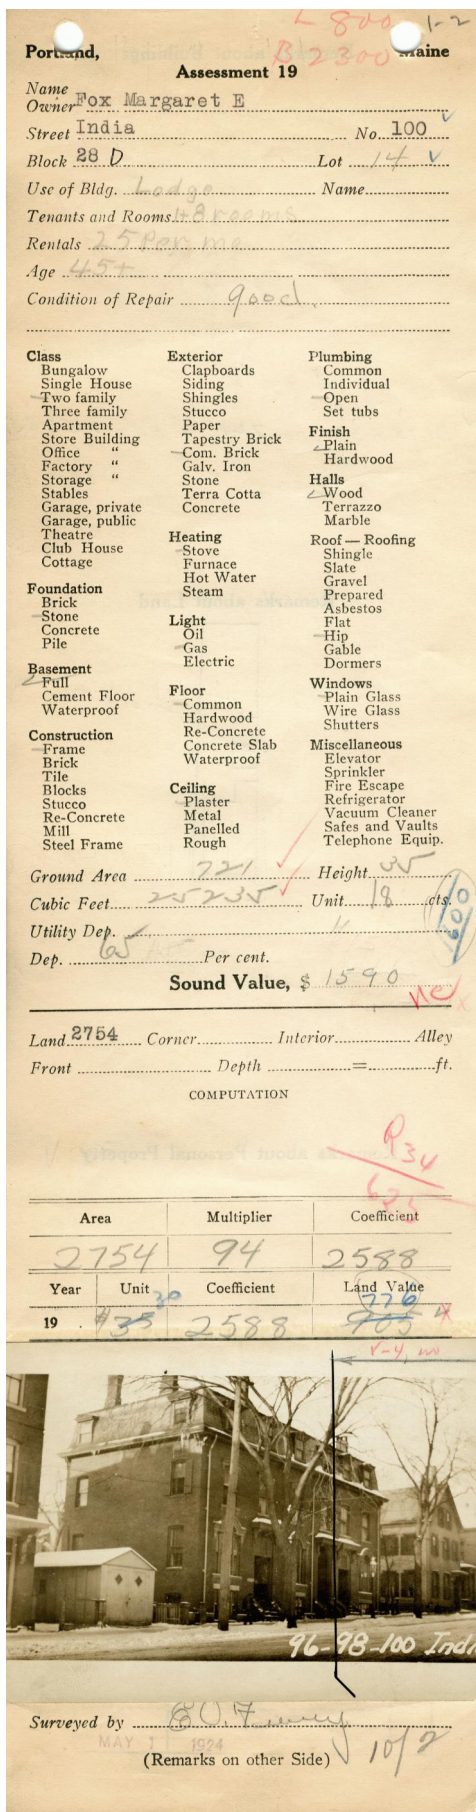 L 800 1-2
B 2300
Portland, Maine
Assessment 19
Name
Owner Fox Margaret E
Street India No. 100
Block 28 D Lot 14
Use of Bldg. Lodge Name
Tenants and Rooms 48 rooms
Rentals 25 Per mo
Age 45+
Condition of Repair good.
Class
Bungalow
Single House
Two family
Three family
Apartment
Store Building
Office "
Factory "
Storage "
Stables
Garage, private
Garage, public
Theatre
Club House
Cottage
Foundation
Brick
Stone
Concrete
Pile
Basement
Full
Cement Floor
Waterproof
Construction
Frame
Brick
Tile
Blocks
Stucco
Re-Concrete
Mill
Steel Frame
Exterior
Clapboards
Siding
Shingles
Stucco
Paper
Tapestry Brick
Com. Brick
Galv. Iron
Stone
Terra Cotta
Concrete
Heating
Stove
Furnace
Hot Water
Steam
Light
Oil
Gas
Electric
Floor
Common
Hardwood
Re-Concrete
Concrete Slab
Waterproof
Ceiling
Plaster
Metal
Panelled
Rough
Plumbing
Common
Individual
Open
Set tubs
Finish
Plain
Hardwood
Halls
Wood
Terrazzo
Marble
Roof — Roofing
Shingle
Slate
Gravel
Prepared
Asbestos
Flat
Hip
Gable
Dormers
Windows
Plain Glass
Wire Glass
Shutters
Miscellaneous
Elevator
Sprinkler
Fire Escape
Refrigerator
Vacuum Cleaner
Safes and Vaults
Telephone Equip.
Ground Area 721 Height 35
Cubic Feet 25235 Unit 18 cts.
1600
Utility Dep. "
Dep. 65 Per cent.
Sound Value, $ 1590
Land 2754 Corner Interior Alley
Front Depth = ft.
COMPUTATION
R 34
625
Area Multiplier Coefficient
2754 94 2588
Year Unit Coefficient Land Value
30 776
19 $35 2588 905
96-98-100 Indi
Surveyed by
MAY 1 1924
(Remarks on other Side) 10/2